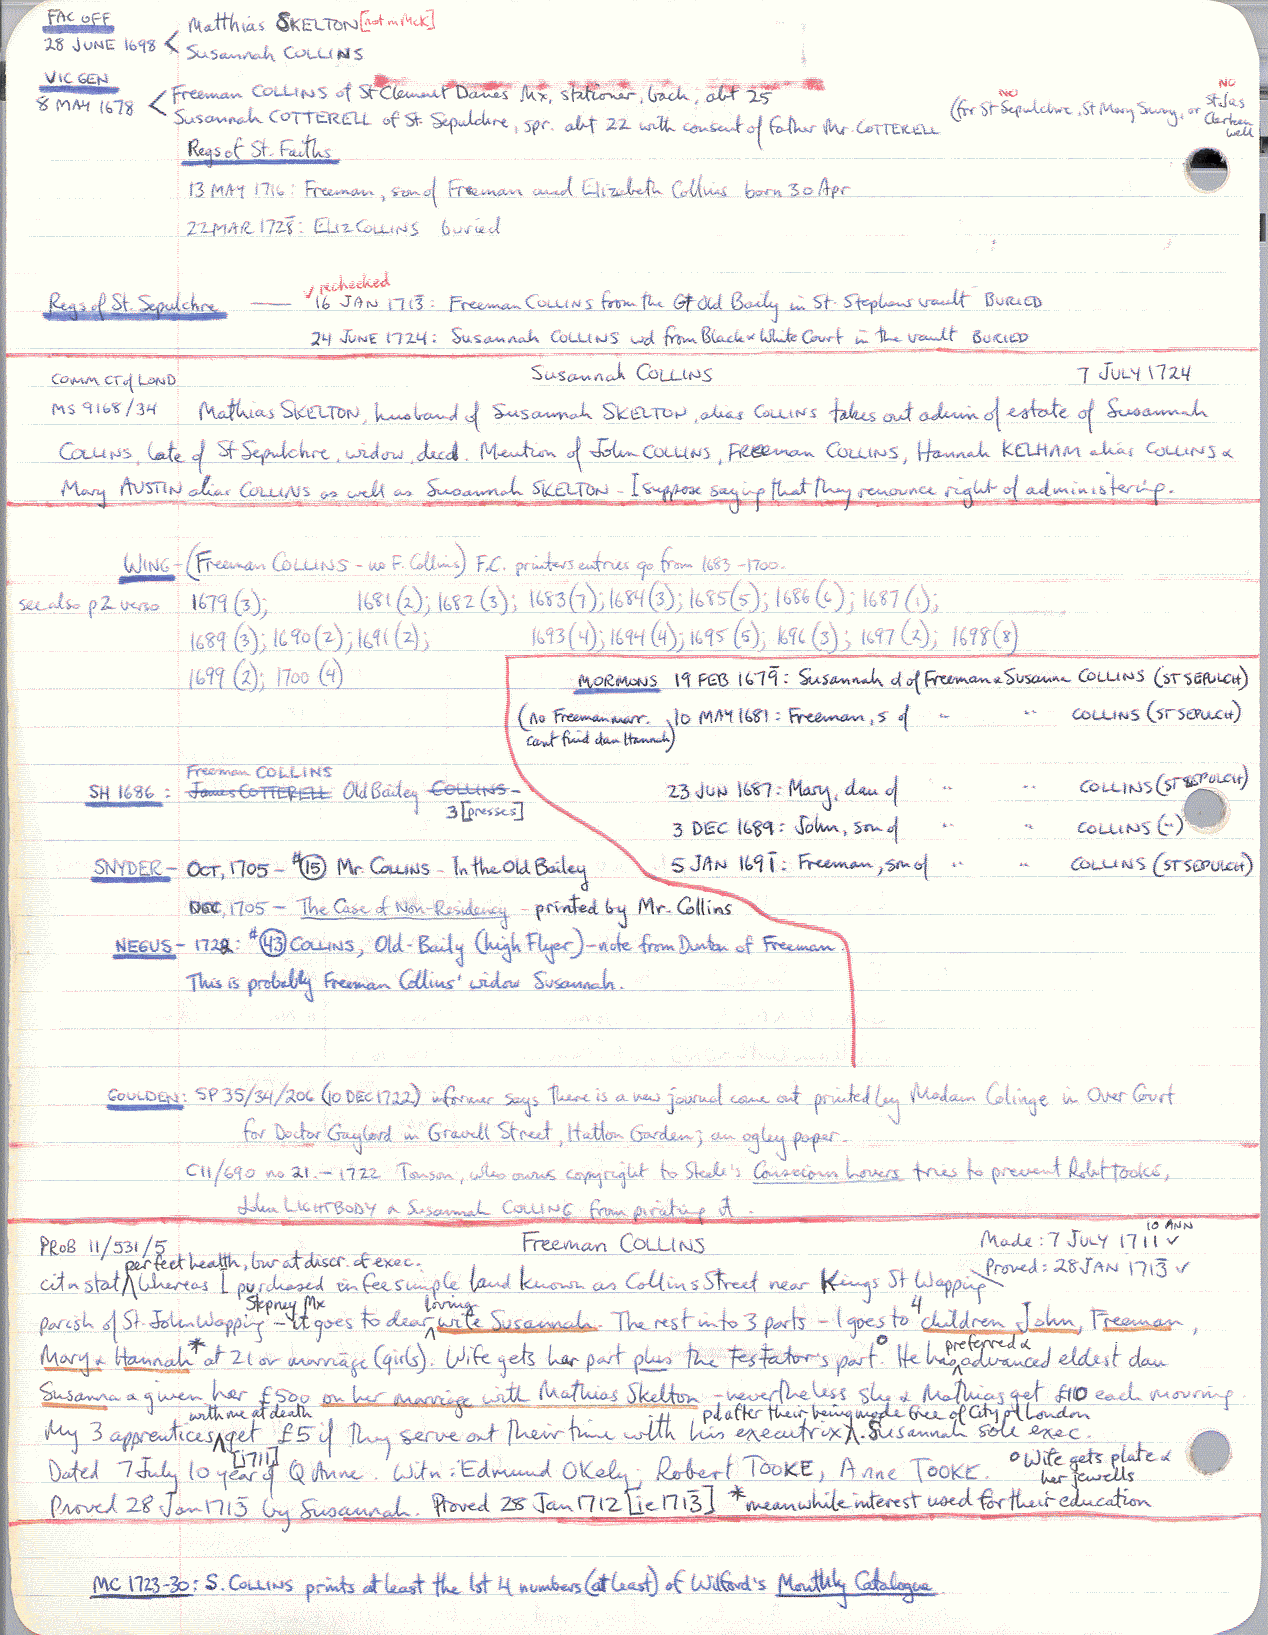 FAC OFF
28 JUNE 1698 < Matthias SKELTON [not in McK]
Susannah COLLINS
VIC GEN
8 MAY 1678 < Freeman COLLINS of St Clement Danes Mx, stationer, bach, abt 25
Susannah COTTERELL of St. Sepulchre, spr. abt 22 with consent of father Mr. COTTERELL
(for St Sepulchre, St Mary Savoy, or St Jas Clerkenwell
NO
NO
Regs of St. Faiths
13 MAY 1716: Freeman, son of Freeman and Elizabeth Collins born 30 Apr
22 MAR 1728: ELIZ COLLINS buried
✓ rechecked
Regs of St. Sepulchre — 16 JAN 1713: Freeman COLLINS from the Gt Old Baily in St. Stephens vault BURIED
24 JUNE 1724: Susannah COLLINS wd from Black & White Court in the vault BURIED
COMM CT of LOND Susannah COLLINS 7 JULY 1724
MS 9168/34 Mathias SKELTON, husband of Susannah SKELTON, alias COLLINS takes out admin of estate of Susannah
COLLINS, late of St Sepulchre, widow, decd. Mention of John COLLINS, FREEman COLLINS, Hannah KELHAM alias COLLINS &
Mary AUSTIN alias COLLINS as well as Susannah SKELTON - I suppose saying that they renounce right of administering.
WING - (Freeman COLLINS - no F. Collins) F.C. printers entries go from 1683-1700.
see also p2 verso 1679(3); 1681(2); 1682(3); 1683(7); 1684(3); 1685(5); 1686(6); 1687(1);
1689(3); 1690(2); 1691(2); 1693(4); 1694(4); 1695(5); 1696(3); 1697(2); 1698(8)
1699(2); 1700(4)
MORMONS 19 FEB 1679: Susannah d of Freeman & Susanna COLLINS (ST SEPULCH)
(no Freeman marr. 10 MAY 1681: Freeman, s of " " COLLINS (ST SEPULCH)
cant find dau Hannah)
Freeman COLLINS
SH 1686: James COTTERELL Old Bailey COLLINS -
3 [presses]
23 JUN 1687: Mary, dau of " " COLLINS (ST SEPULCH)
3 DEC 1689: John, son of " " COLLINS (")
SNYDER - OCT, 1705 - #15 Mr. COLLINS - In the Old Bailey
5 JAN 1691: Freeman, son of " " COLLINS (ST SEPULCH)
DEC, 1705 - The Case of Non-Residency - printed by Mr. Collins
NEGUS - 1722: #43 COLLINS, Old-Baily (high Flyer) - note from Dunton of Freeman.
This is probably Freeman Collins' widow Susannah.
GOULDEN: SP 35/34/206 (10 DEC 1722) informer says there is a new journal come out printed by Madam Colinge in Over Court
for Doctor Gaylord in Gravell Street, Hatton Garden; an ogley paper.
C11/690 no 21. - 1722 Tonson, who owns copyright to Steele's Conscious lovers tries to prevent Robt TOOKE,
John LIGHTBODY & Susannah COLLING from pirating it.
PROB 11/531/5 Freeman COLLINS Made: 7 JULY 1711 ✓
10 ANN
Proved: 28 JAN 1713 ✓
perfect health, bur at discr. of exec.
cit & stat ^ Whereas I purchased in fee simple land known as Collins Street near Kings St Wapping
Stepney Mx loving
parish of St. John Wapping - it goes to dear ^ wife Susannah. The rest into 3 parts - 1 goes to 4 children John, Freeman,
Mary & Hannah* at 21 or marriage (girls). Wife gets her part plus the Testator's part°. He has ^ advanced eldest dau
preferred &
Susanna & given her £500 on her marriage with Mathias Skelton - nevertheless she & Mathias get £10 each mourning.
with me at death pd after their being made free of City of London
My 3 apprentices ^ get £5 if they serve out their time with his executrix ^. Susannah sole exec.
[1711]
Dated 7 July 10 year of Q Anne. Witn: Edmund OKely, Robert TOOKE, Anne TOOKE. ° Wife gets plate &
her jewells
Proved 28 Jan 1713 by Susannah. Proved 28 Jan 1712 [ie 1713] *meanwhile interest used for their education
MC 1723-30: S. COLLINS prints at least the 1st 4 numbers (at least) of Wilford's Monthly Catalogue.